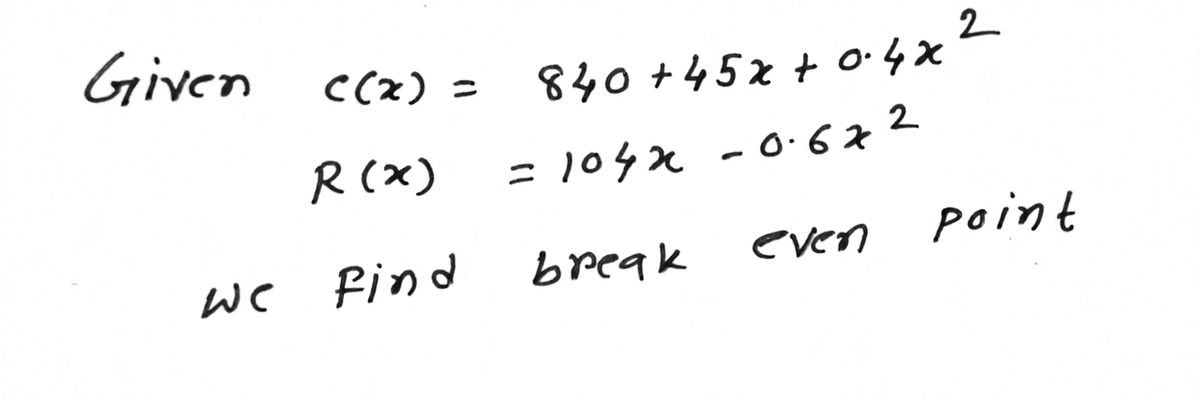 Given c(x) = 840 + 45x + 0.4x²
R(x) = 104x - 0.6x²
we find break even point